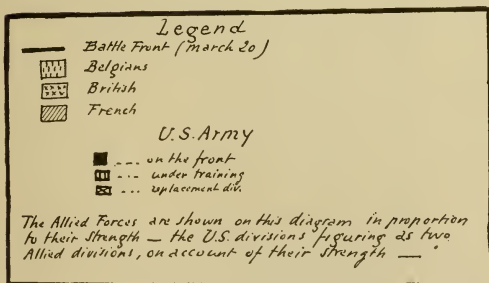 Legend
Battle Front (March 20)
Belgians
British
French
U.S. Army
--- on the front
--- under training
--- replacement div.
The Allied Forces are shown on this diagram in proportion
to their strength — the U.S. divisions figuring as two
Allied divisions, on account of their strength —